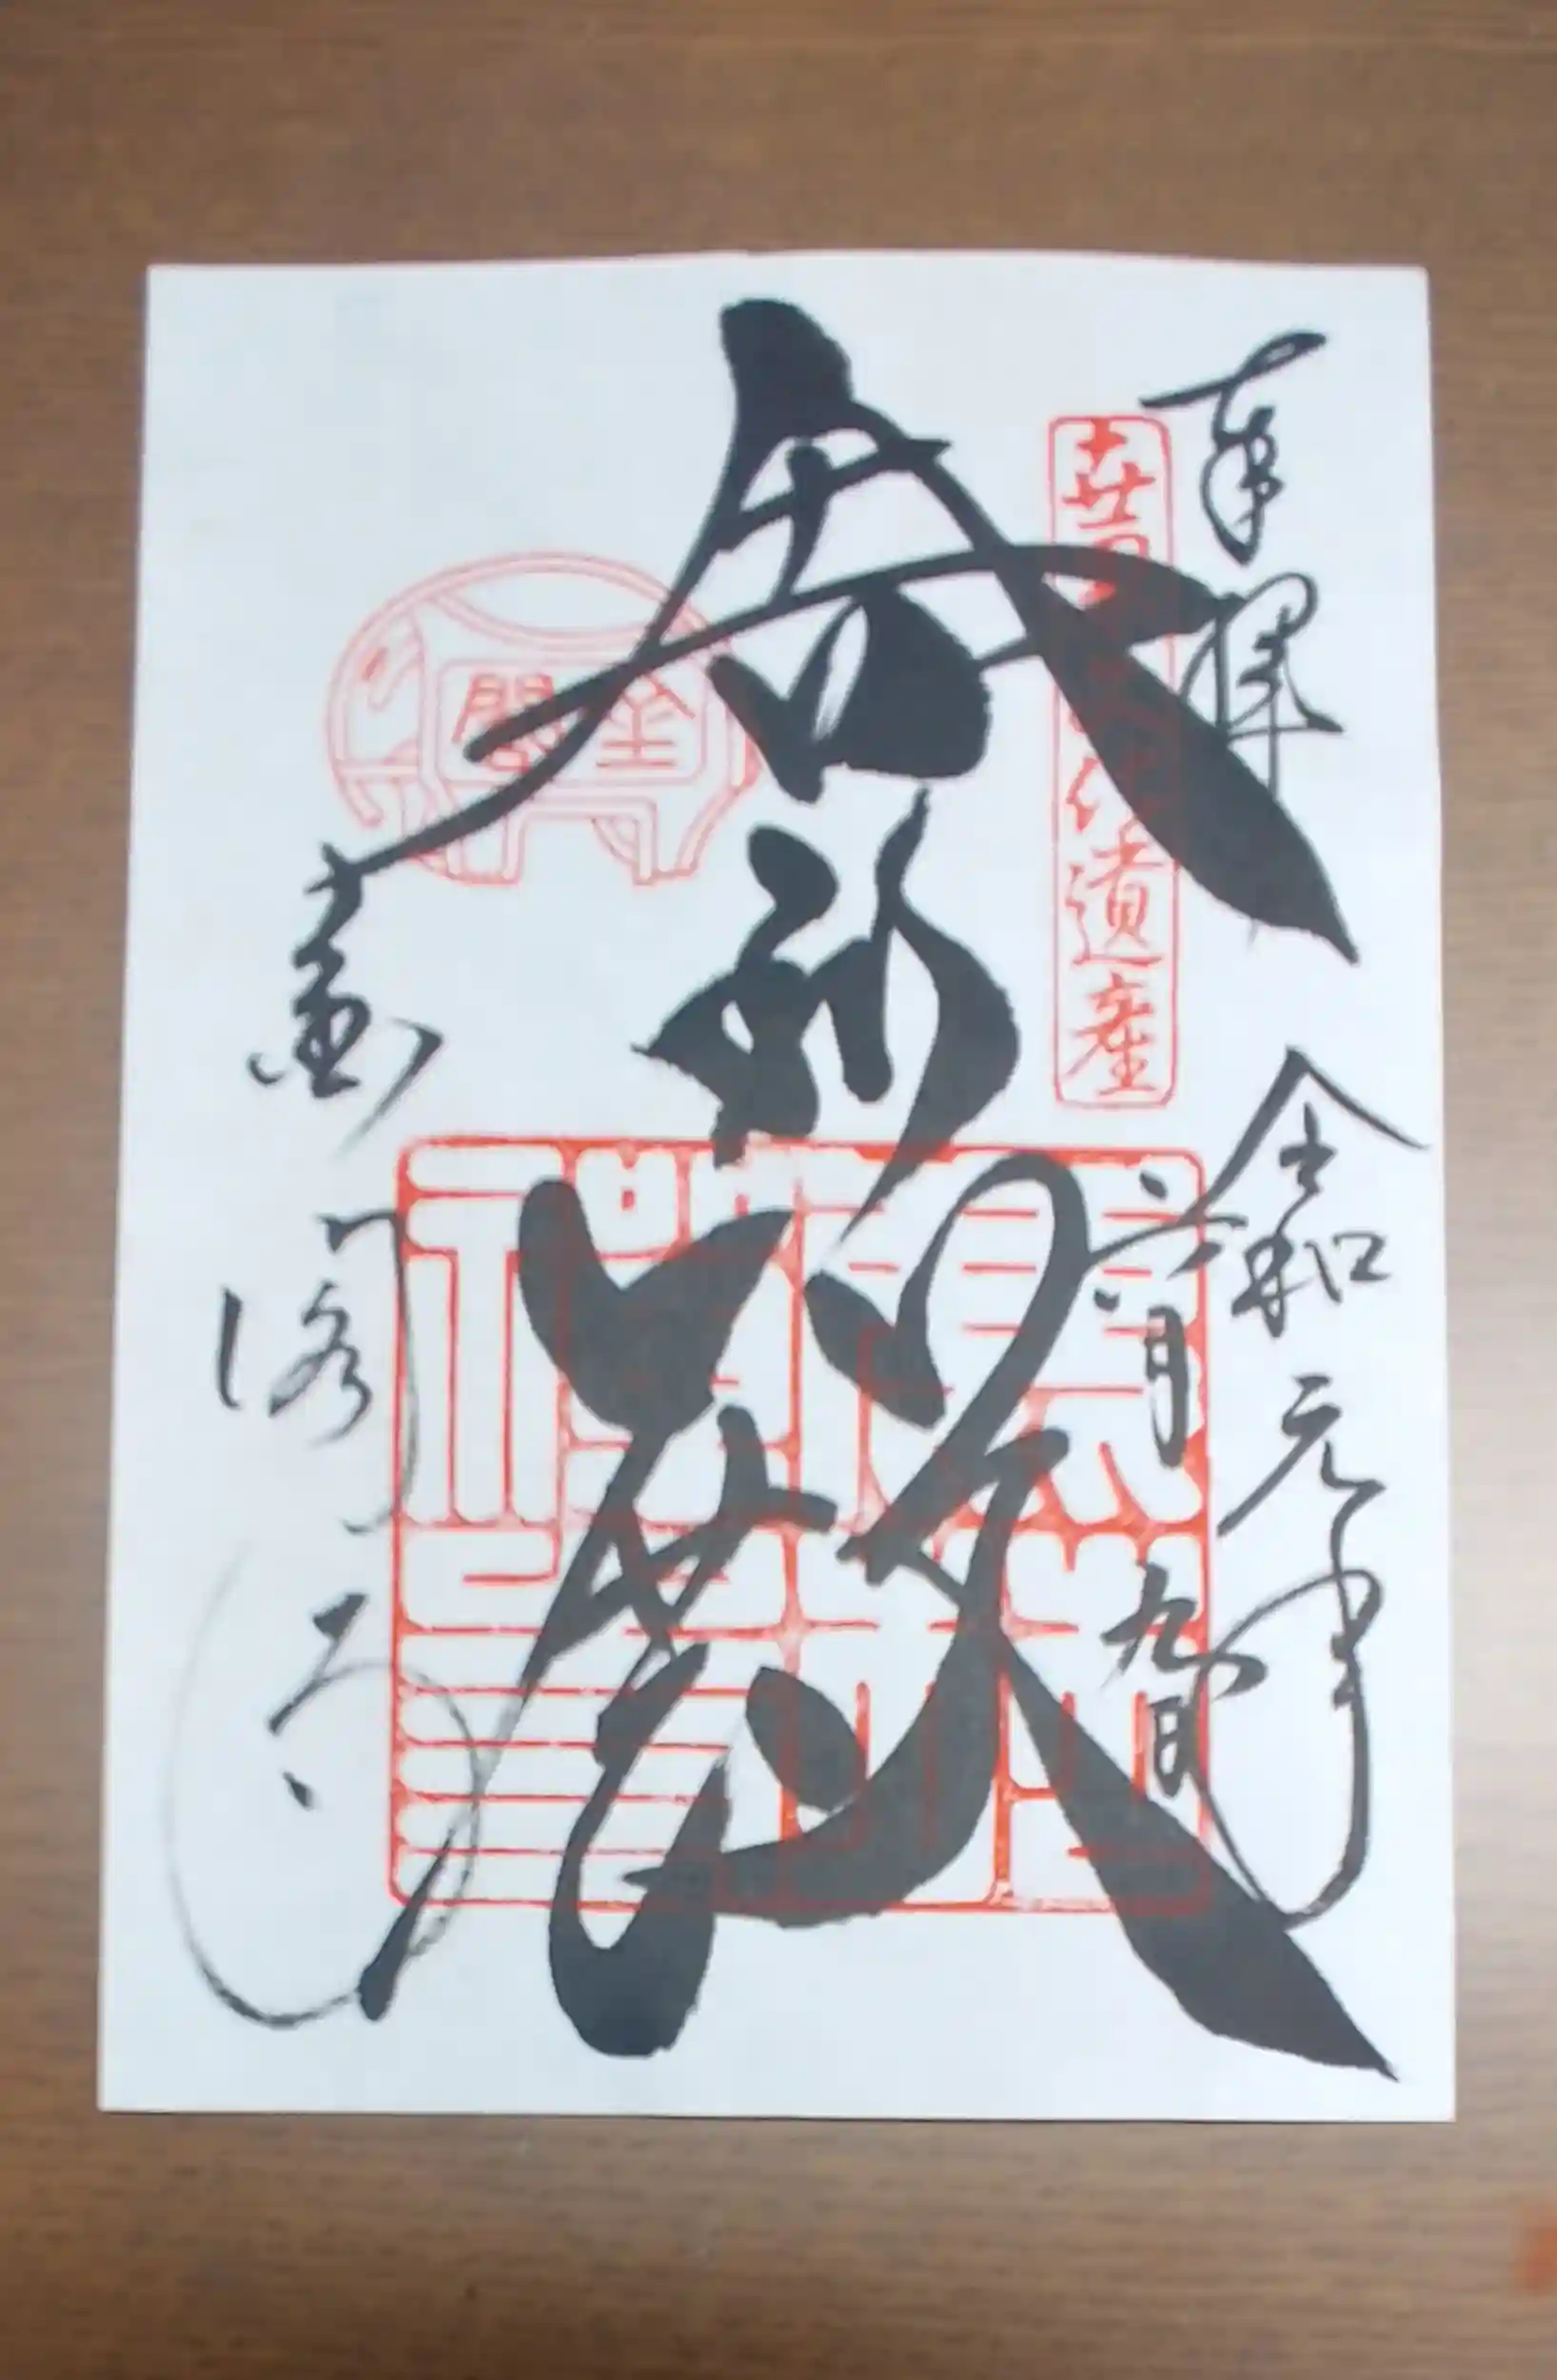 奉拝
令和元年
六月九日
世界文化遺産
舎利殿
金閣
金閣寺